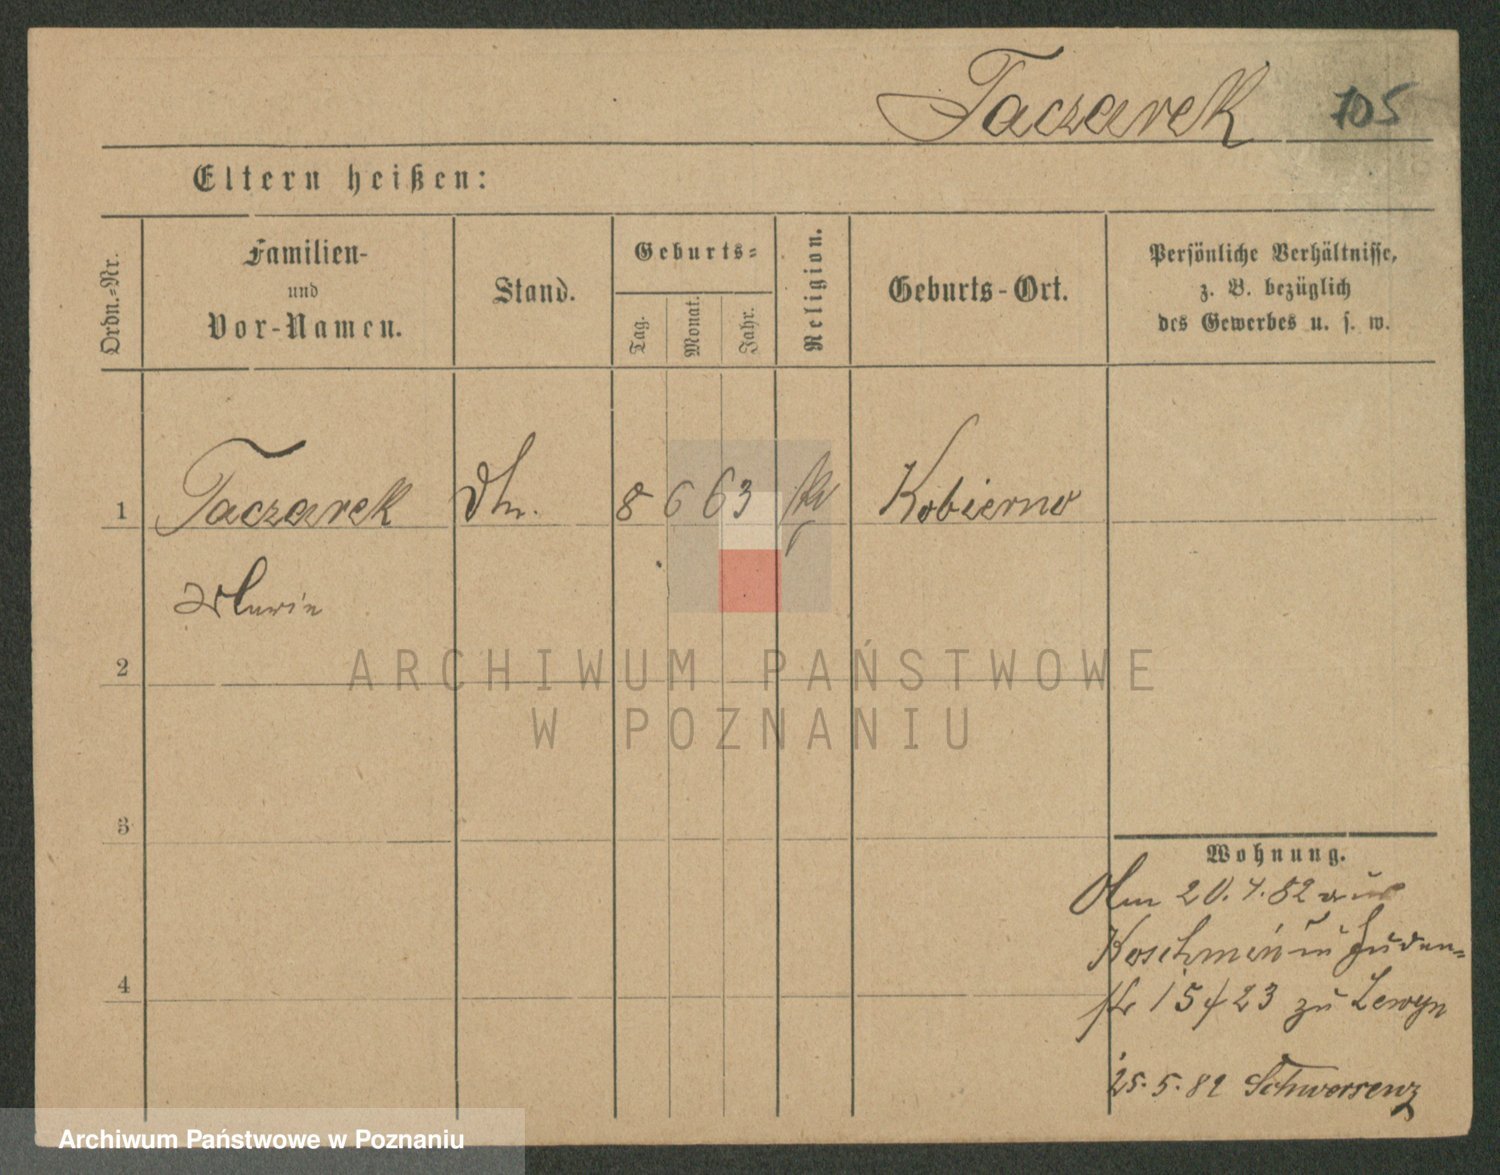 Taczarek 105
Eltern heißen:
Ordn.-Nr.
Familien-
und
Vor-Namen.
Stand.
Geburts-
Tag.
Monat.
Jahr.
Religion.
Geburts-Ort.
Persönliche Verhältnisse,
z. B. bezüglich
des Gewerbes u. s. w.
1 Taczarek 8 6 63 Kobierno
Marie
2
ARCHIWUM PAŃSTWOWE
W POZNANIU
3
Wohnung.
20. 4. 82 aus
Koschmin in Juden-
str 15/23 zu Lewyn
4
25. 5. 82 Schwersenz
Archiwum Państwowe w Poznaniu